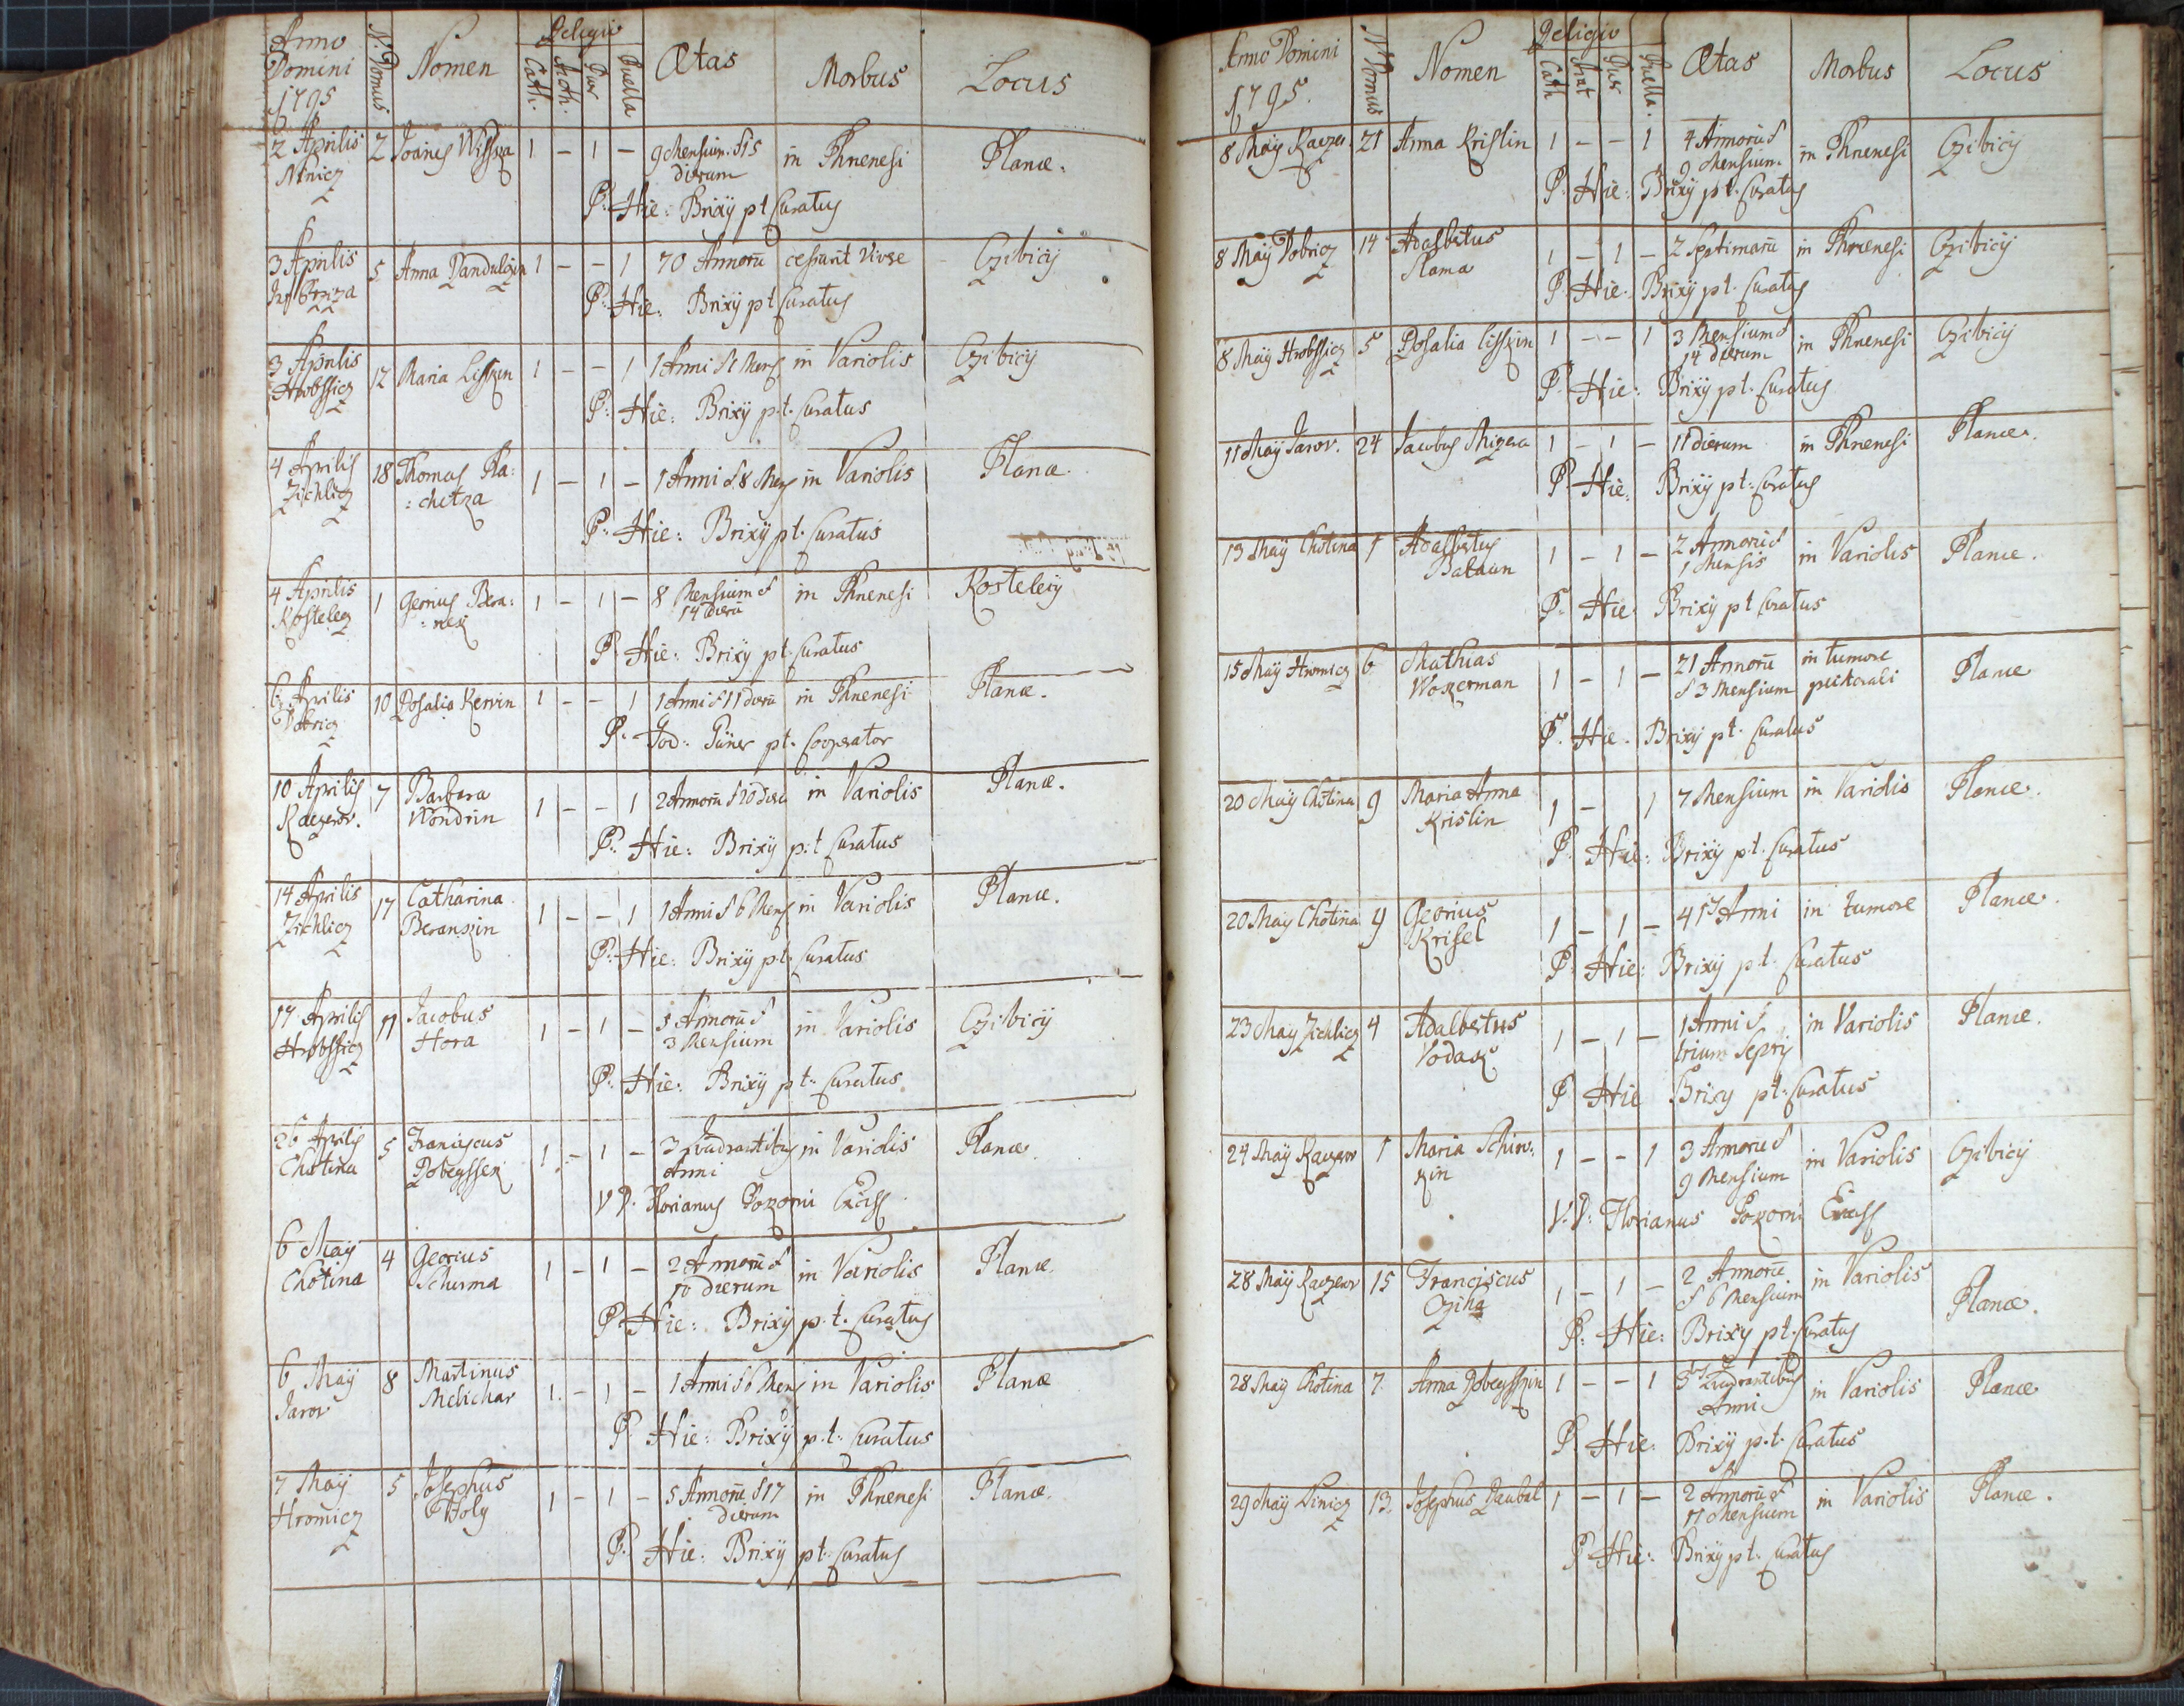 Anno Domini 1795 N. Domus Nomen Religio Cath. Puer Puella Ætas Morbus Locus
2 Aprilis 2 Joañes 1 – 1 – 9 Mensium & 15 dierum in Phrenesi Planæ.
P: Hie: Brixÿ pt Curatus
3 Aprilis 5 Anna 1 – – 1 70 Annorū Cžibicÿ
P: Hie: Brixÿ pt Curatus
3 Aprilis Hrobssicz 12 Maria Lisskin 1 – – 1 1 Anni in Variolis Czibicÿ
P: Hie: Brixÿ p.t. Curatus
4 Aprilis Zichlicz 18 Thomas Pla:
:chetka 1 – 1 – 1 Anni & 8 Mens in Variolis Planæ.
P: Hie: Brixÿ pt. Curatus
4 Aprilis Kostelecz 1 Georius Bera:
:nek 1 – 1 – 8 Mensium & 14 dierū in Phrenesi Kosteleciÿ
P: Hie: Brixÿ pt. Curatus
6 Aprilis 10 Rosalia Kervin 1 – – 1 1 Anni & 11 dierū in Phrenesi Planæ.
P. Jod: pt. Cooperator
10 Aprilis Raczow. 7 Barbara Wondrin 1 – – 1 2 Annorū & 20 in Variolis Planæ.
P: Hie: Brixÿ p:t Curatus
14 Aprilis Zichlicz 17 Catharina Berankin 1 – – 1 1 Anni & 6 Mens in Variolis Planæ.
P: Hie: Brixÿ pt. Curatus
17 Aprilis Hrobssicz 11 Jacobus Hora 1 – 1 – 5 Annorū & 3 Mensium in Variolis Czibicÿ
P: Hie: Brixÿ pt: Curatus
26 Aprilis Chotina 5 Franciscus Robeyssek 1 – 1 – 3 Quadrantibus Anni in Variolis Planæ
V P. Florianus Pokorni
6 Maÿ Chotina 4 Georius Schurma 1 – 1 – 2 Annorū & 10 dierum in Variolis Planæ.
P: Hie: Brixÿ p.t. Curatus
6 Maÿ Jarov 8 Martinus Melichar 1. – 1 – 1 Anni & 6 Mens in Variolis Planæ
P Hie: Brixÿ p:t: Curatus
7 Maÿ Hromicz 5 Josephus Holy 1 – 1 – 5 Annorū & 17 dierum in Phrenesi Planæ.
P. Hie: Brixÿ pt: Curatus
Anno Domini 1795. N Domus Nomen Religio Cath Puer Puella. Ætas Morbus Locus
8 Maÿ 21 Anna Krislin 1 – – 1 4 Annorū & 9 Mensium in Phrenesi Czibicÿ
P: Hie: Brixÿ pt. Curatus
8 Maÿ Dobricz 14 Adalbertus Slama 1 – 1 – 2 Septimanū in Phrenesi Czibicÿ
P: Hie: Brixÿ pt. Curatus
8 Maÿ Hrobssicz 5 Rosalia Lisskin 1 – – 1 3 Mensium & 14 dierum in Phrenesi Czibicÿ
P: Hie: Brixÿ pt. Curatus
11 Maÿ Jarov. 24 Jacobus 1 – 1 – 11 dierum in Phrenesi Planæ.
P Hie: Brixÿ pt: Curatus
13 Maÿ Chotina 1 Adalbertus 1 – 1 – 2 Annorū & 1 Mensis in Variolis Planæ.
P: Hie: Brixÿ pt Curatus
15 Maÿ Hromicz 6 Mathias Wokerman 1 – 1 – 21 Annorū & 3 Mensium in tumore pectorali Planæ
P. Hie. Brixÿ pt. Curatus
20 Maÿ Chotina 9 Maria Anna Krislin 1 – 1 7 Mensium in Variolis Planæ.
P. Hie: Brixÿ p.t. Curatus
20 Maÿ Chotina 9 Georius Krisel 1 – 1 – 41 Anni in tumore Planæ.
P. Hie: Brixÿ pt. Curatus
23 Maÿ Zichlicz 4 Adalbertus Vodak 1 – 1 – 1 Anni & trium in Variolis Planæ.
P Hie Brixy pt: Curatus
24 Maÿ Raczow 1 Maria 1 – – 1 3 Annorū & 9 Mensium in Variolis Czibicÿ
V. P: Florianus Pokorni
28 Maÿ Raczow 15 Franciscus Cziha 1 – 1 – 2 Annorū & 6 Mensium in Variolis Planæ.
P: Hie: Brixÿ pt. Curatus
28 Maÿ Chotina 7. Anna Robeysskin 1 – – 1 Quadrantibus Anni in Variolis Planæ
P. Hie: Brixÿ p.t. Curatus
29 Maÿ 13. Josephus Daubal 1 – 1 – 2 Annorū & 11 Mensium in Variolis Planæ.
P Hie: Brixÿ pt: Curatus